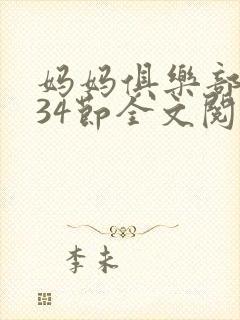 妈妈俱樂部
34節全文閱
李未